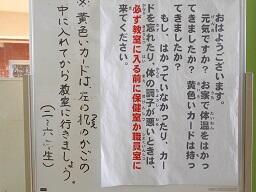 おはようございます。
元気ですか？お家で体温をはかっ
てきましたか？黄色いカードは持っ
てきましたか？
もし、はかっていなかったり、カー
ドを忘れたり、体の調子が悪いときは、
必ず教室に入る前に保健室か職員室に
来てください。
※黄色いカードは、左の机のかごの
中に入れてから教室に行きましょう。